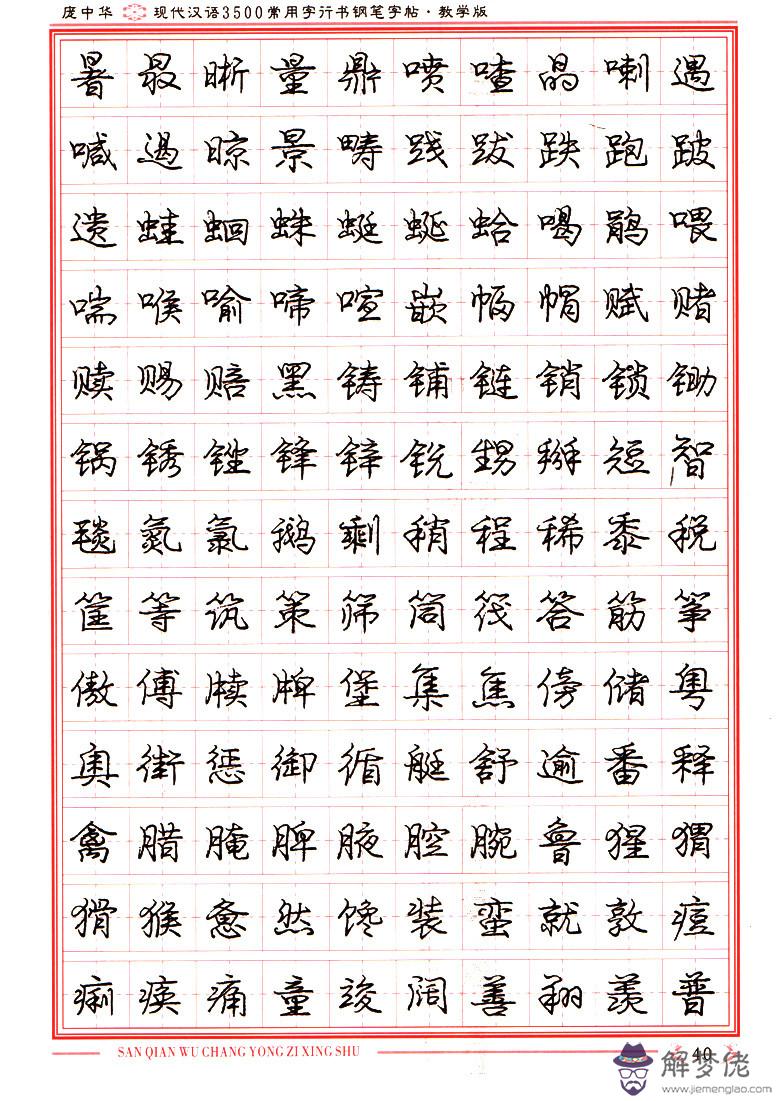 庞中华 现代汉语3500常用字行书钢笔字帖·教学版
暑最晰量鼎喷喳晶喇遇
喊遏晾景畴践跋跌跑跛
遗蛙蛔蛛蜓蜒蛤喝鹃喂
喘喉喻啼喧嵌幅帽赋赌
赎赐赔黑铸铺链销锁锄
锅锈锉锋锌锐甥掰短智
毯氮氯鹅剩稍程稀黍税
筐等筑策筛筒筏答筋筝
傲傅牍牌堡集焦傍储粤
奥街惩御循艇舒逾番释
禽腊腌脾腋腔腕鲁猩猬
猾猴惫然馋装蛮就敦痘
痢痪痛童竣阔善翔羡普
SAN QIAN WU CHANG YONG ZI XING SHU
40
解梦佬
www.jiemenglao.com